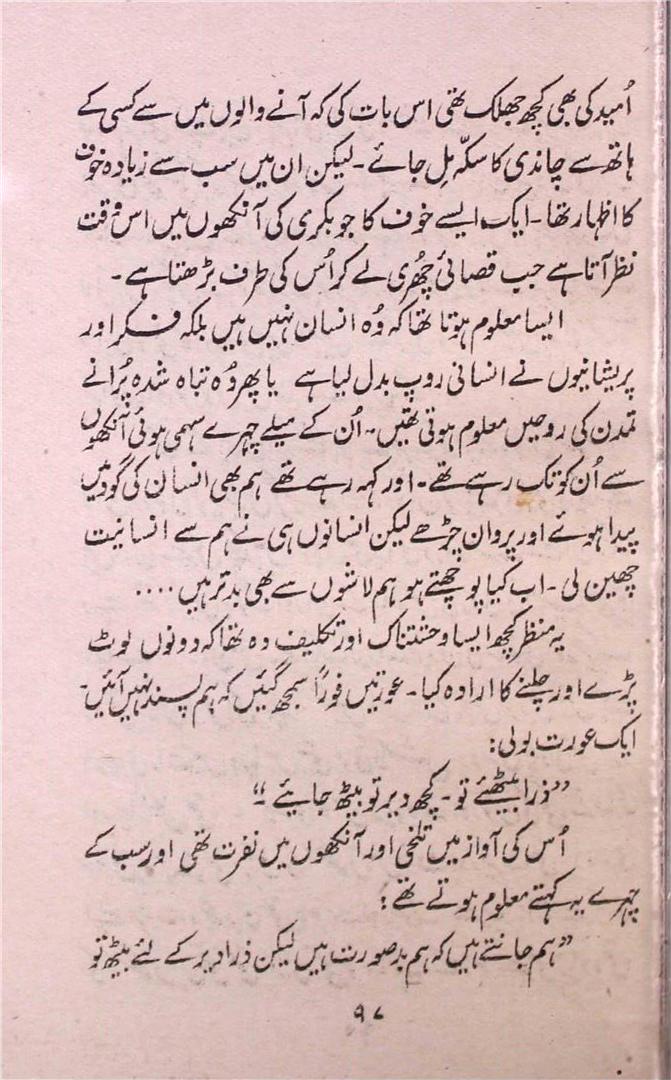 اُمید کی بھی کچھ جھلک تھی اس بات کی کہ آنے والوں میں سے کسی کے
ہاتھ سے چاندی کا سکّہ مِل جائے۔ لیکن ان میں سب سے زیادہ خوف
کا اظہار تھا۔ ایک ایسے خوف کا جو بکری کی آنکھوں میں اس وقت
نظر آتا ہے جب قصائی چُھری لے کر اُس کی طرف بڑھتا ہے۔
ایسا معلوم ہوتا تھا کہ وُہ انسان نہیں ہیں بلکہ فکر اور
پریشانیوں نے انسانی روپ بدل لیا ہے یا پھر وُہ تباہ شدہ پُرانے
تمدن کی روحیں معلوم ہوتی تھیں۔ اُن کے میلے چہرے سہمی ہوئی آنکھوں
سے اُن کو تک رہے تھے۔ اور کہہ رہے تھے ہم بھی انسان کی گود میں
پیدا ہوئے اور پروان چڑھے لیکن انسانوں ہی نے ہم سے انسانیت
چھین لی۔ اب کیا پوچھتے ہو ہم لاشوں سے بھی بدتر ہیں ....
یہ منظر کچھ ایسا وحشتناک اور تکلیف دہ تھا کہ دونوں لوٹ
پڑے اور چلنے کا ارادہ کیا۔ عورتیں فوراً سمجھ گئیں کہ ہم پسند نہیں آئیں۔
ایک عورت بولی:
”ذرا بیٹھئے تو۔ کچھ دیر تو بیٹھ جایئے۔“
اُس کی آواز میں تلخی اور آنکھوں میں نفرت تھی اور سب کے
چہرے یہ کہتے معلوم ہوتے تھے:
”ہم جانتے ہیں کہ ہم بدصورت ہیں لیکن ذرا دیر کے لئے بیٹھ تو
۹۷